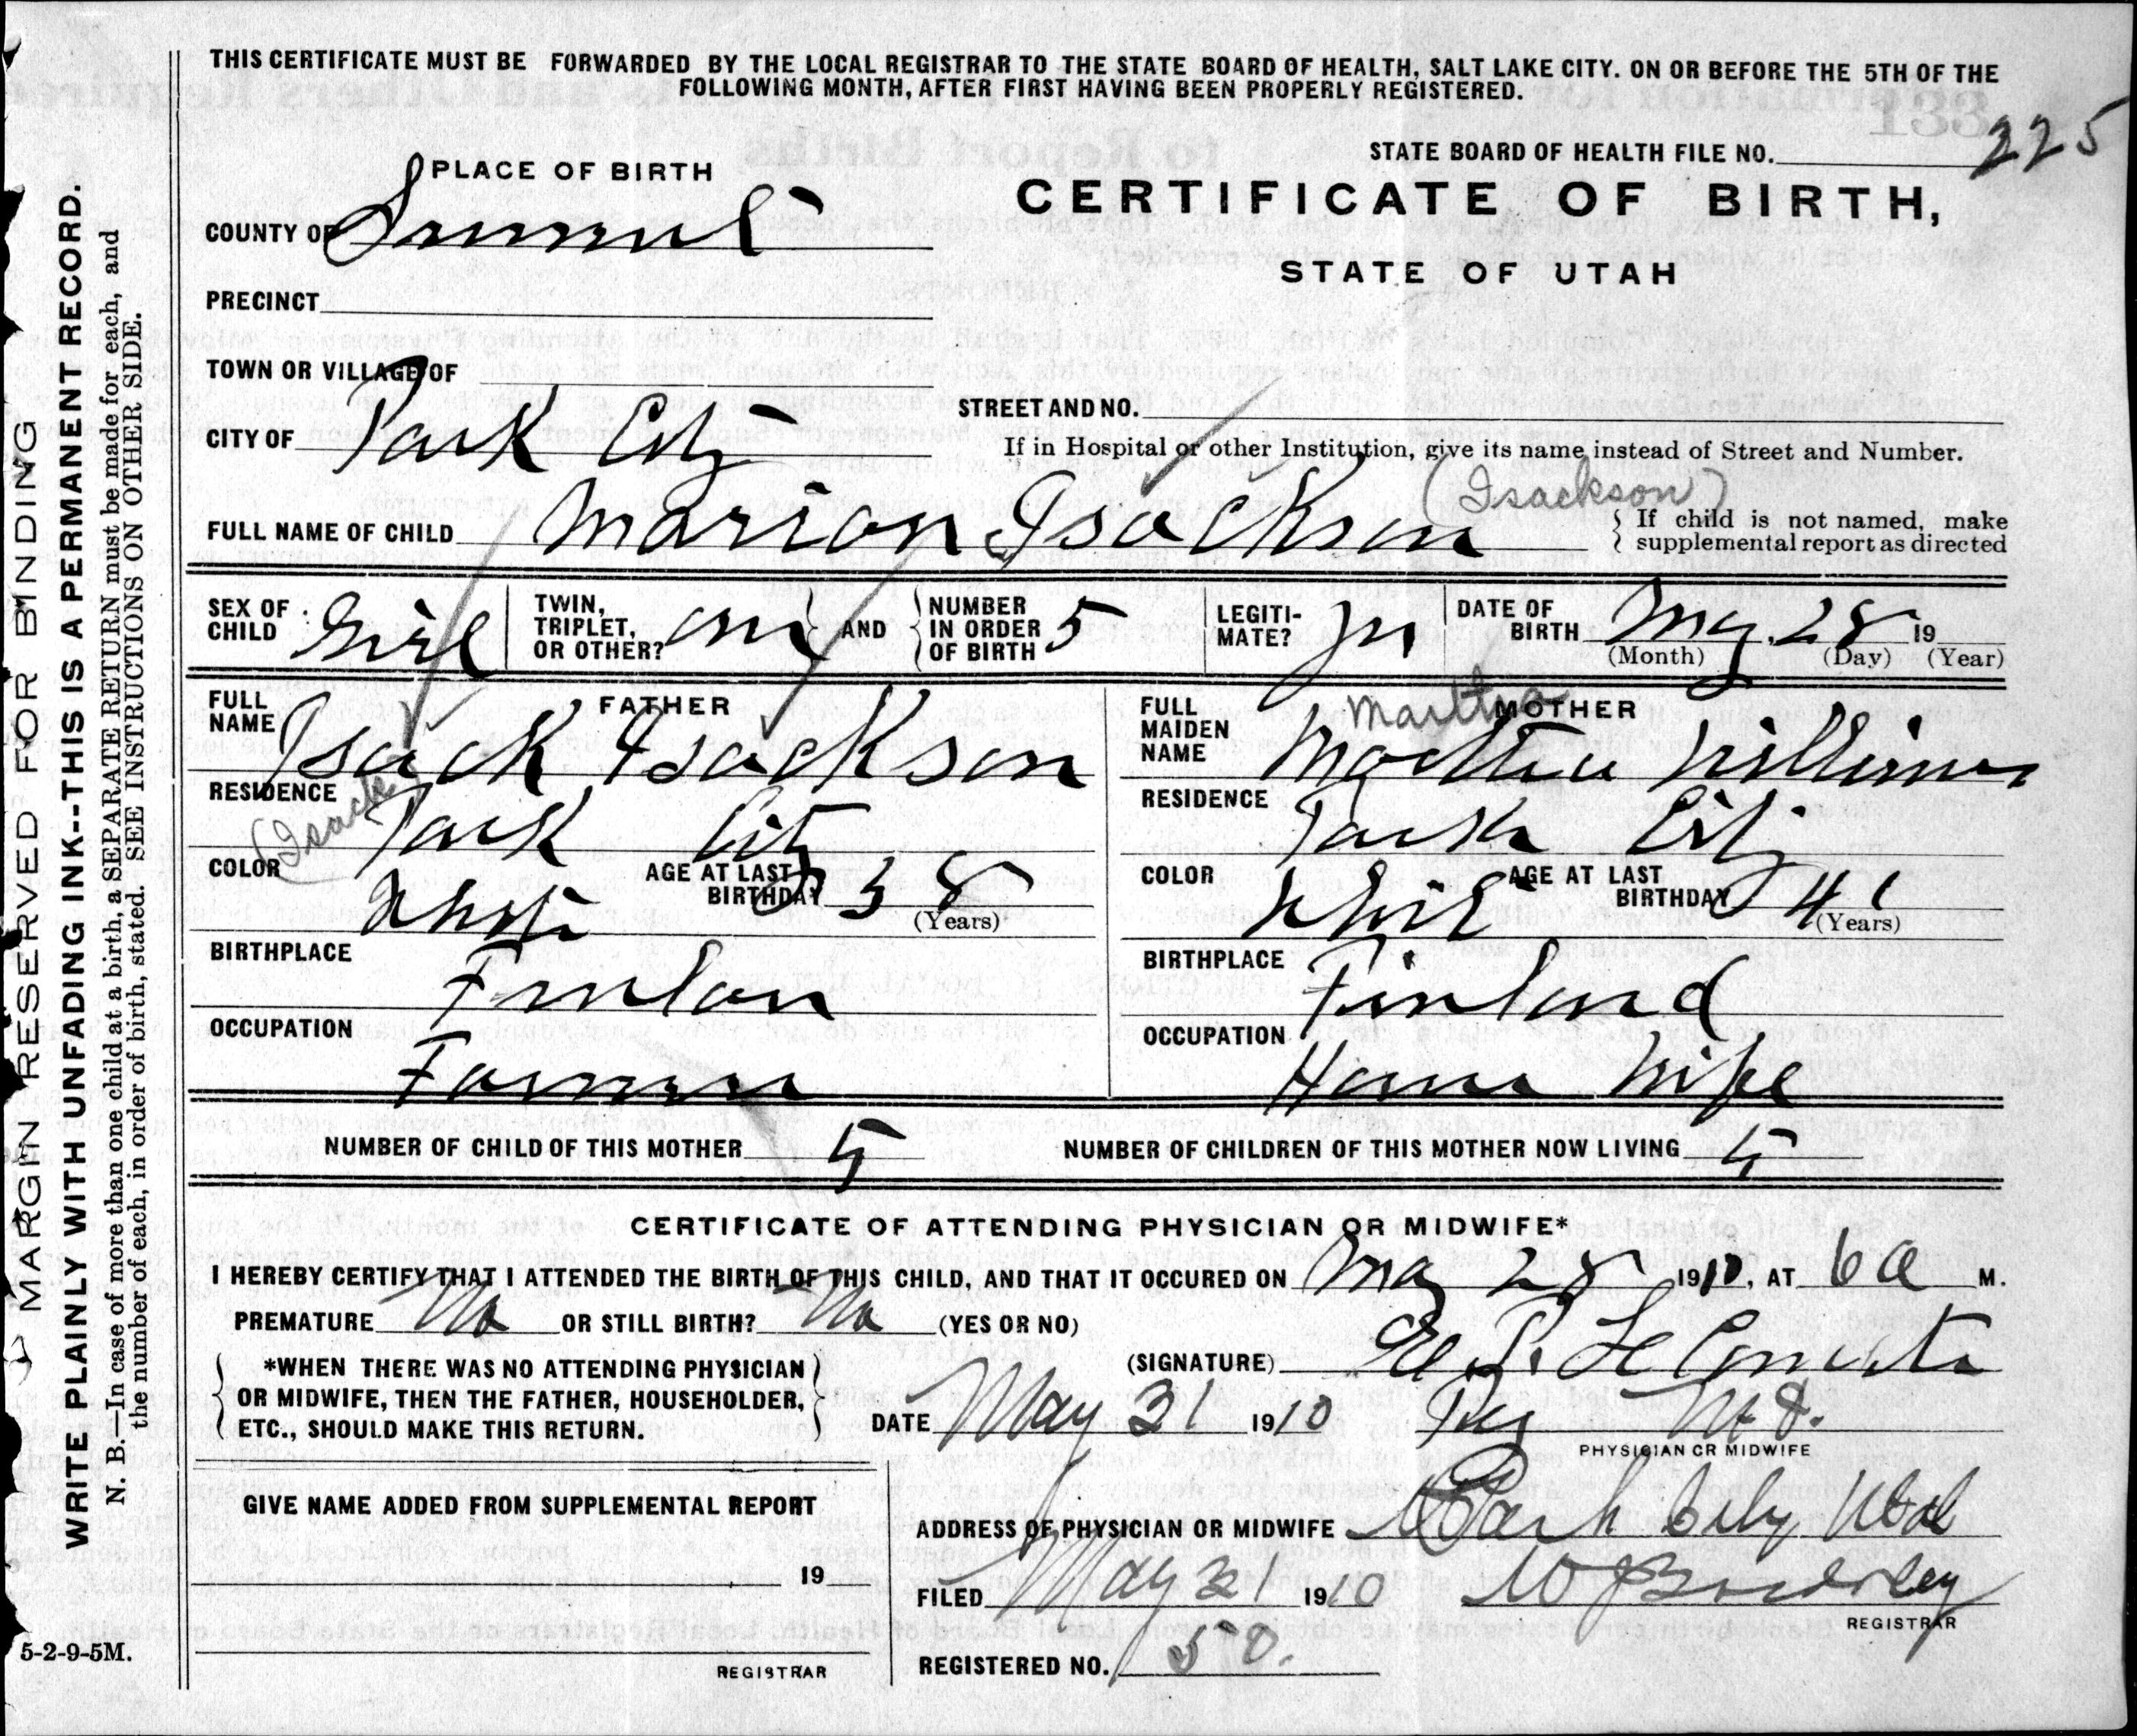 THIS CERTIFICATE MUST BE FORWARDED BY THE LOCAL REGISTRAR TO THE STATE BOARD OF HEALTH, SALT LAKE CITY. ON OR BEFORE THE 5TH OF THE
FOLLOWING MONTH, AFTER FIRST HAVING BEEN PROPERLY REGISTERED.
STATE BOARD OF HEALTH FILE NO. 225
CERTIFICATE OF BIRTH,
STATE OF UTAH
PLACE OF BIRTH
COUNTY OF Summit
PRECINCT
TOWN OR VILLAGE OF
CITY OF Park City
STREET AND NO.
If in Hospital or other Institution, give its name instead of Street and Number.
(Isackson)
FULL NAME OF CHILD Marion Isackson
{ If child is not named, make
supplemental report as directed
SEX OF CHILD Girl
TWIN, TRIPLET, OR OTHER?
AND
NUMBER IN ORDER OF BIRTH 5
LEGITIMATE?
DATE OF BIRTH May 28 19
(Month) (Day) (Year)
FATHER
FULL NAME Isack Isackson
(Isack)
RESIDENCE Park City
COLOR White
AGE AT LAST BIRTHDAY 38
(Years)
BIRTHPLACE Finlan
OCCUPATION Farmer
MOTHER
Martha
FULL MAIDEN NAME Martha
RESIDENCE Park City
COLOR White
AGE AT LAST BIRTHDAY 41
(Years)
BIRTHPLACE Finland
OCCUPATION House Wife
NUMBER OF CHILD OF THIS MOTHER 5
NUMBER OF CHILDREN OF THIS MOTHER NOW LIVING 5
CERTIFICATE OF ATTENDING PHYSICIAN OR MIDWIFE*
I HEREBY CERTIFY THAT I ATTENDED THE BIRTH OF THIS CHILD, AND THAT IT OCCURED ON May 28 1910, AT 6 a M.
PREMATURE No OR STILL BIRTH? No (YES OR NO)
(SIGNATURE) E. P. Le Compte
*WHEN THERE WAS NO ATTENDING PHYSICIAN
OR MIDWIFE, THEN THE FATHER, HOUSEHOLDER,
ETC., SHOULD MAKE THIS RETURN.
DATE May 31 1910
PHYSICIAN OR MIDWIFE
GIVE NAME ADDED FROM SUPPLEMENTAL REPORT
19
REGISTRAR
ADDRESS OF PHYSICIAN OR MIDWIFE Park City Utah
FILED May 31 1910
REGISTRAR
REGISTERED NO. 50.
MARGIN RESERVED FOR BINDING
WRITE PLAINLY WITH UNFADING INK--THIS IS A PERMANENT RECORD.
N. B.—In case of more than one child at a birth, a SEPARATE RETURN must be made for each, and
the number of each, in order of birth, stated. SEE INSTRUCTIONS ON OTHER SIDE.
5-2-9-5M.